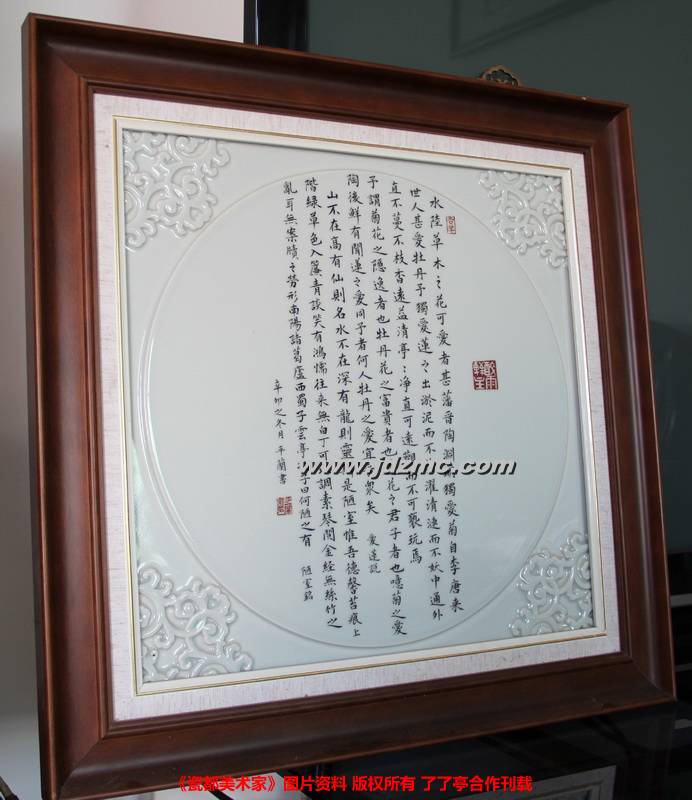 水陸草木之花可愛者甚蕃晋陶淵獨愛菊自李唐来
世人甚愛牡丹予獨愛蓮之出淤泥而不濯清漣而不妖中通外
直不蔓不枝香遠益清亭〻净直可遠觀而不可褻玩焉
予謂菊花之隱逸者也牡丹花之富貴者也花之君子者也噫菊之愛
陶後鮮有聞蓮之愛同予者何人牡丹之愛宜衆矣 愛蓮説
山不在高有仙則名水不在深有龍則靈是陋室惟吾德馨苔痕上
階緑草色入簾青談笑有鴻儒往来無白丁可調素琴閲金經無絲竹之
亂耳無案牘之勞形南陽諸葛廬西蜀子雲亭子曰何陋之有 陋室銘
辛卯之冬月平蘭書
www.jdzmc.com
《瓷都美术家》图片资料 版权所有 了了亭合作刊载